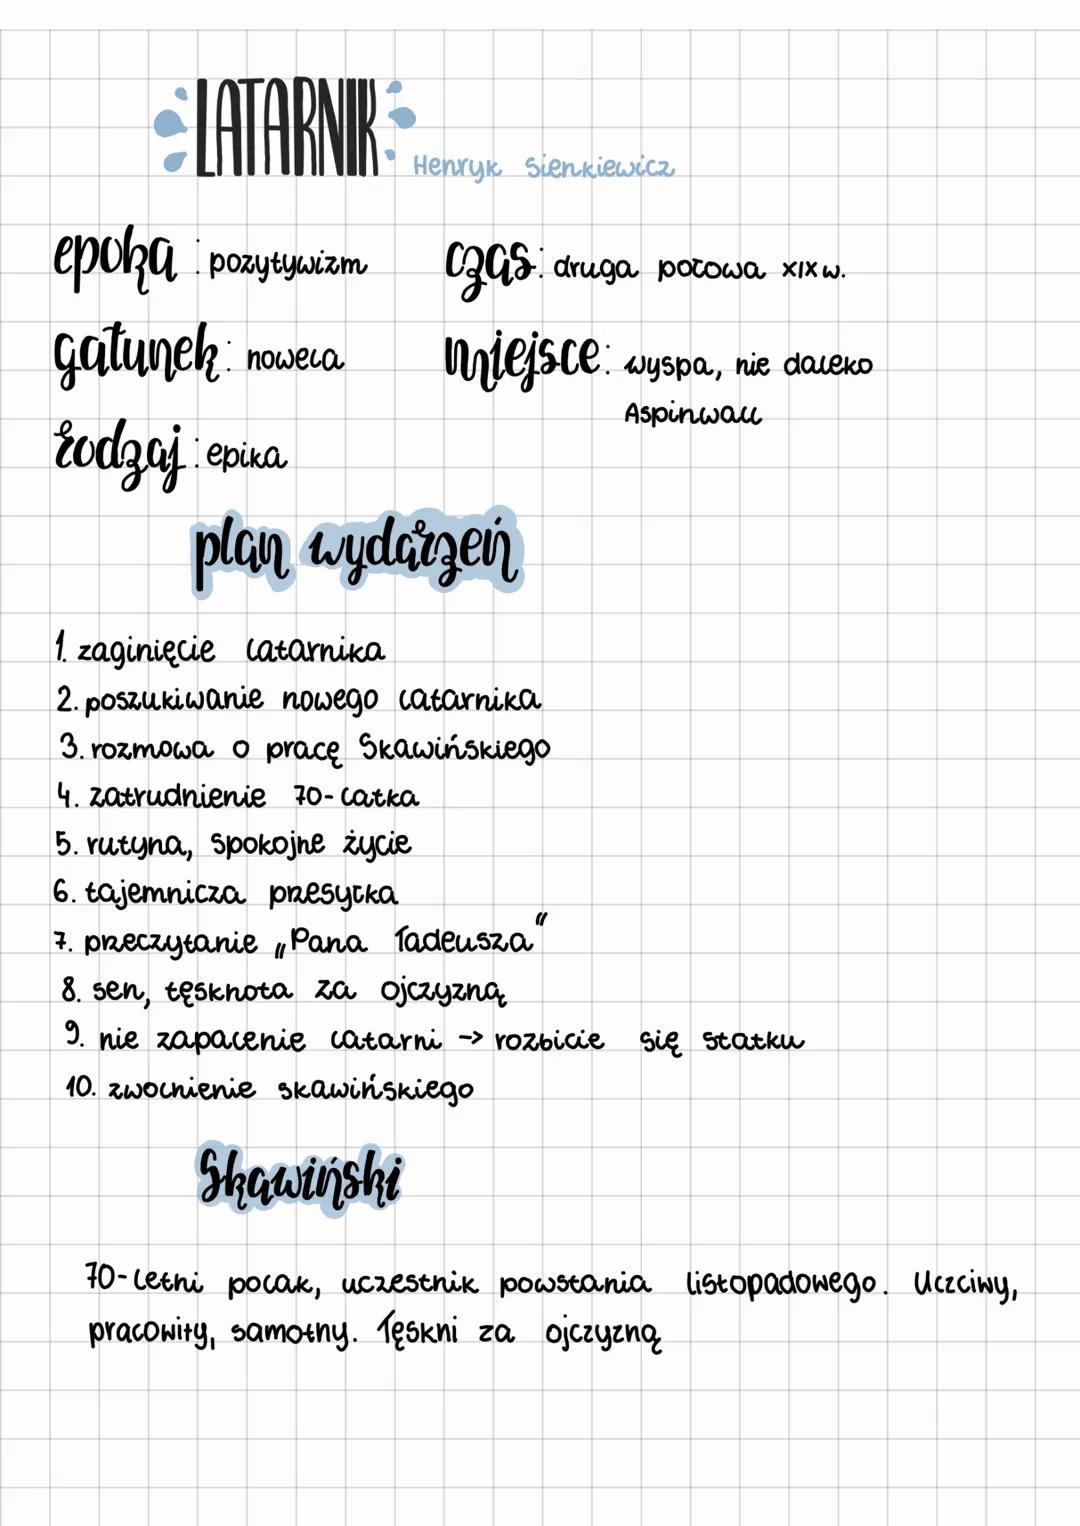 LATARNIK
Henryk Sienkiewicz
epoka : pozytywizm
czas : druga połowa XIX w.
gatunek : nowela
miejsce : wyspa, nie daleko
Aspinwall
rodzaj : epika
plan wydarzeń
1. zaginięcie latarnika
2. poszukiwanie nowego latarnika
3. rozmowa o pracę Skawińskiego
4. zatrudnienie 70-latka
5. rutyna, spokojne życie
6. tajemnicza przesyłka
7. przeczytanie „Pana Tadeusza"
8. sen, tęsknota za ojczyzną
9. nie zapalenie latarni -> rozbicie się statku
10. zwolnienie skawińskiego
Skawiński
70-letni polak, uczestnik powstania listopadowego. Uczciwy,
pracowity, samotny. Tęskni za ojczyzną